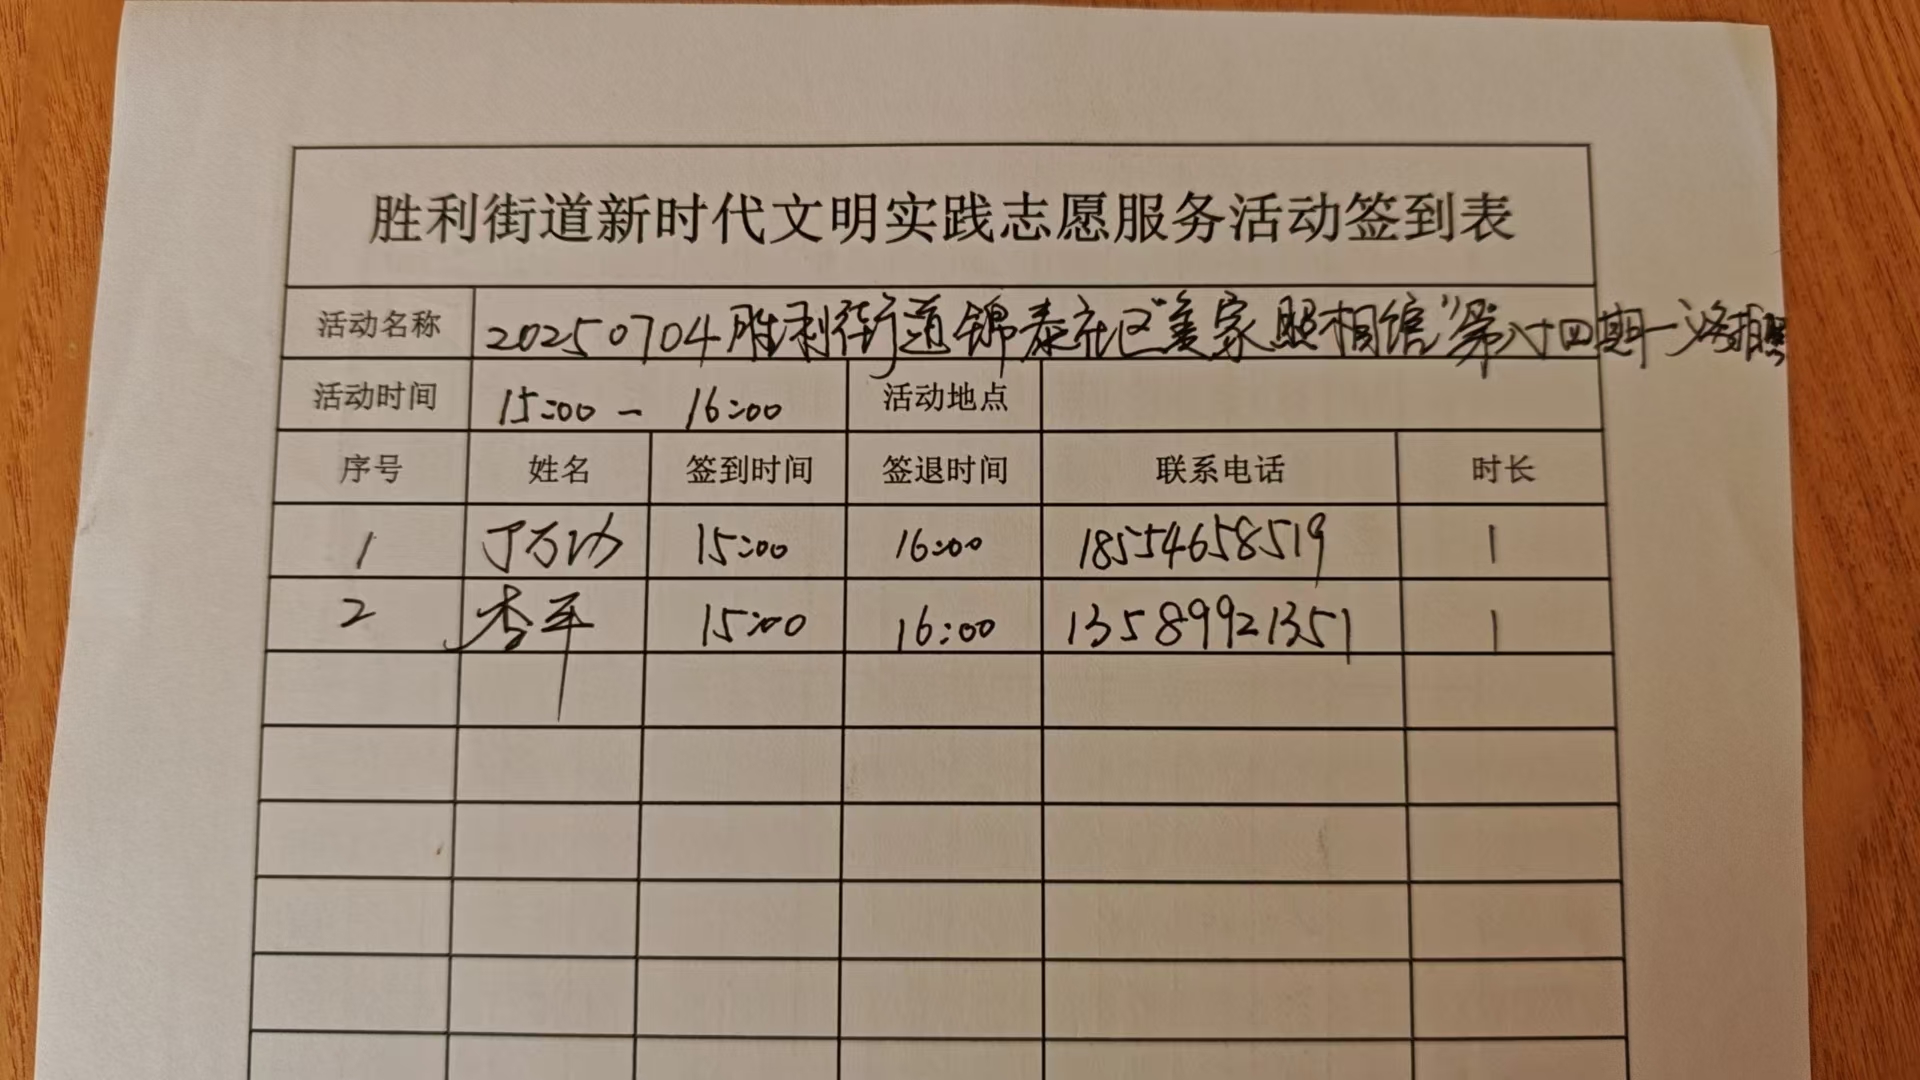 胜利街道新时代文明实践志愿服务活动签到表
活动名称 20250704胜利街道锦泰社区"全家照相馆"第八十四期一 拍照
活动时间 15:00 - 16:00 活动地点
序号 姓名 签到时间 签退时间 联系电话 时长
1 丁万功 15:00 16:00 18554658519 1
2 李平 15:00 16:00 13589921351 1